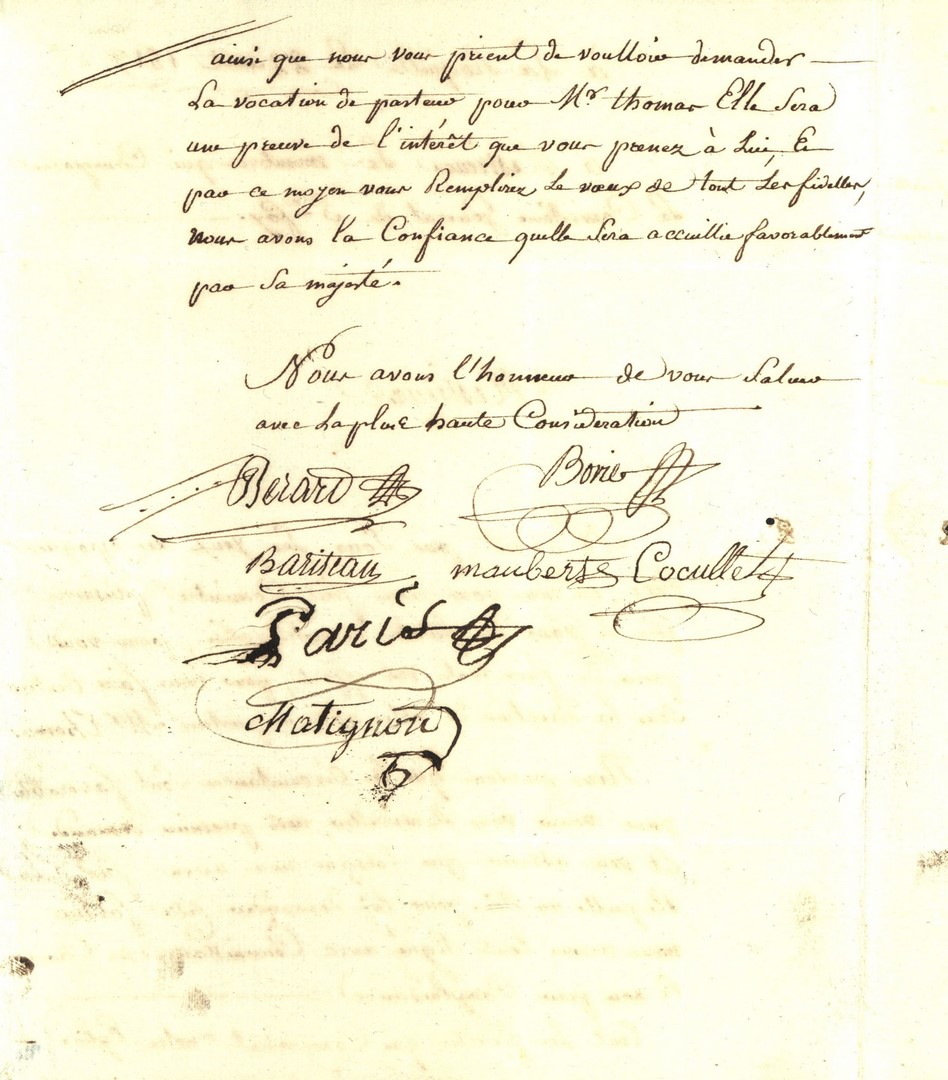 ainsi que nous vous prient de voulloir demander
La vocation de pasteur pour Mr. thomas Elle Sera
une preuve de l'intérêt que vous prenez à Lui, Et
par ce moyen vous Remplirez Le vœux de tout Les fidelles,
nous avons la Confiance quelle Sera accuillie favorablement
par Sa majesté.
Nous avons l'honneur de vous Saluer
avec La plus haute Consideration
Berard Borie
Bariteau mauberts Cocullet
Paris
Matignon